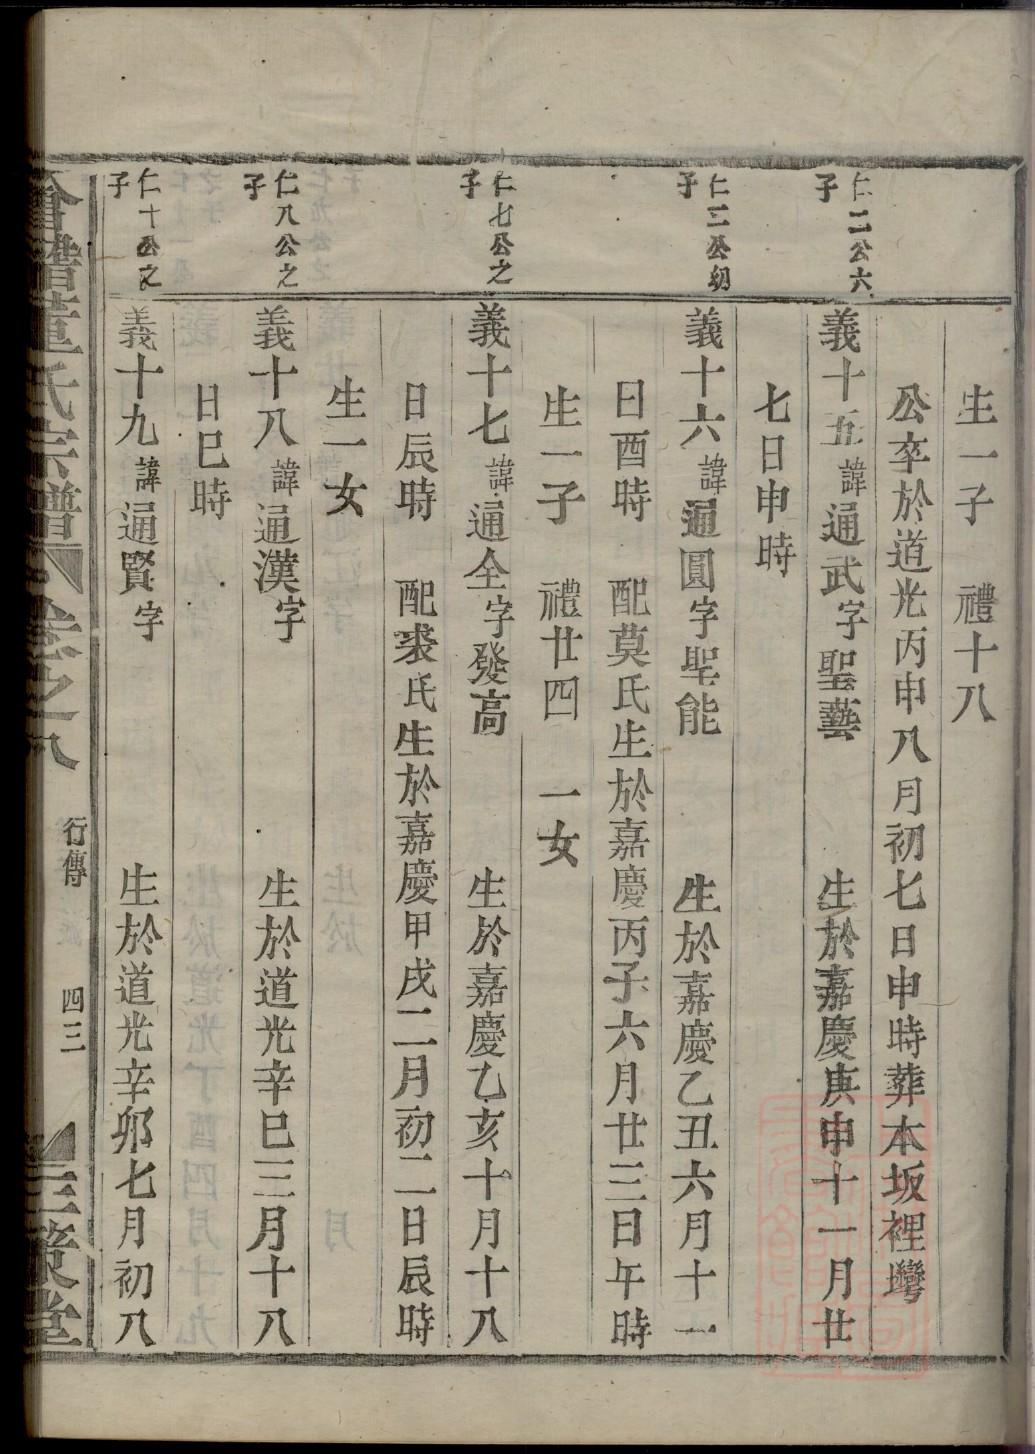 生一子　禮十八
公卒於道光丙申八月初七日申時葬本坂裡灣
仁二公六子
義十五諱通武字聖藝　生於嘉慶庚申十一月廿
七日申時
仁二公幼子
義十六諱通圓字聖能　生於嘉慶乙丑六月十一
日酉時　配莫氏生於嘉慶丙子六月廿三日午時
生一子　禮廿四　一女
仁七公之子
義十七諱通全字發高　生於嘉慶乙亥十月十八
日辰時　配裘氏生於嘉慶甲戌二月初二日辰時
生一女
仁八公之子
義十八諱通漢字　生於道光辛巳三月十八
日巳時
仁十公之子
義十九諱通賢字　生於道光辛卯七月初八
董氏宗譜　卷之八　行傳　四三　三策堂